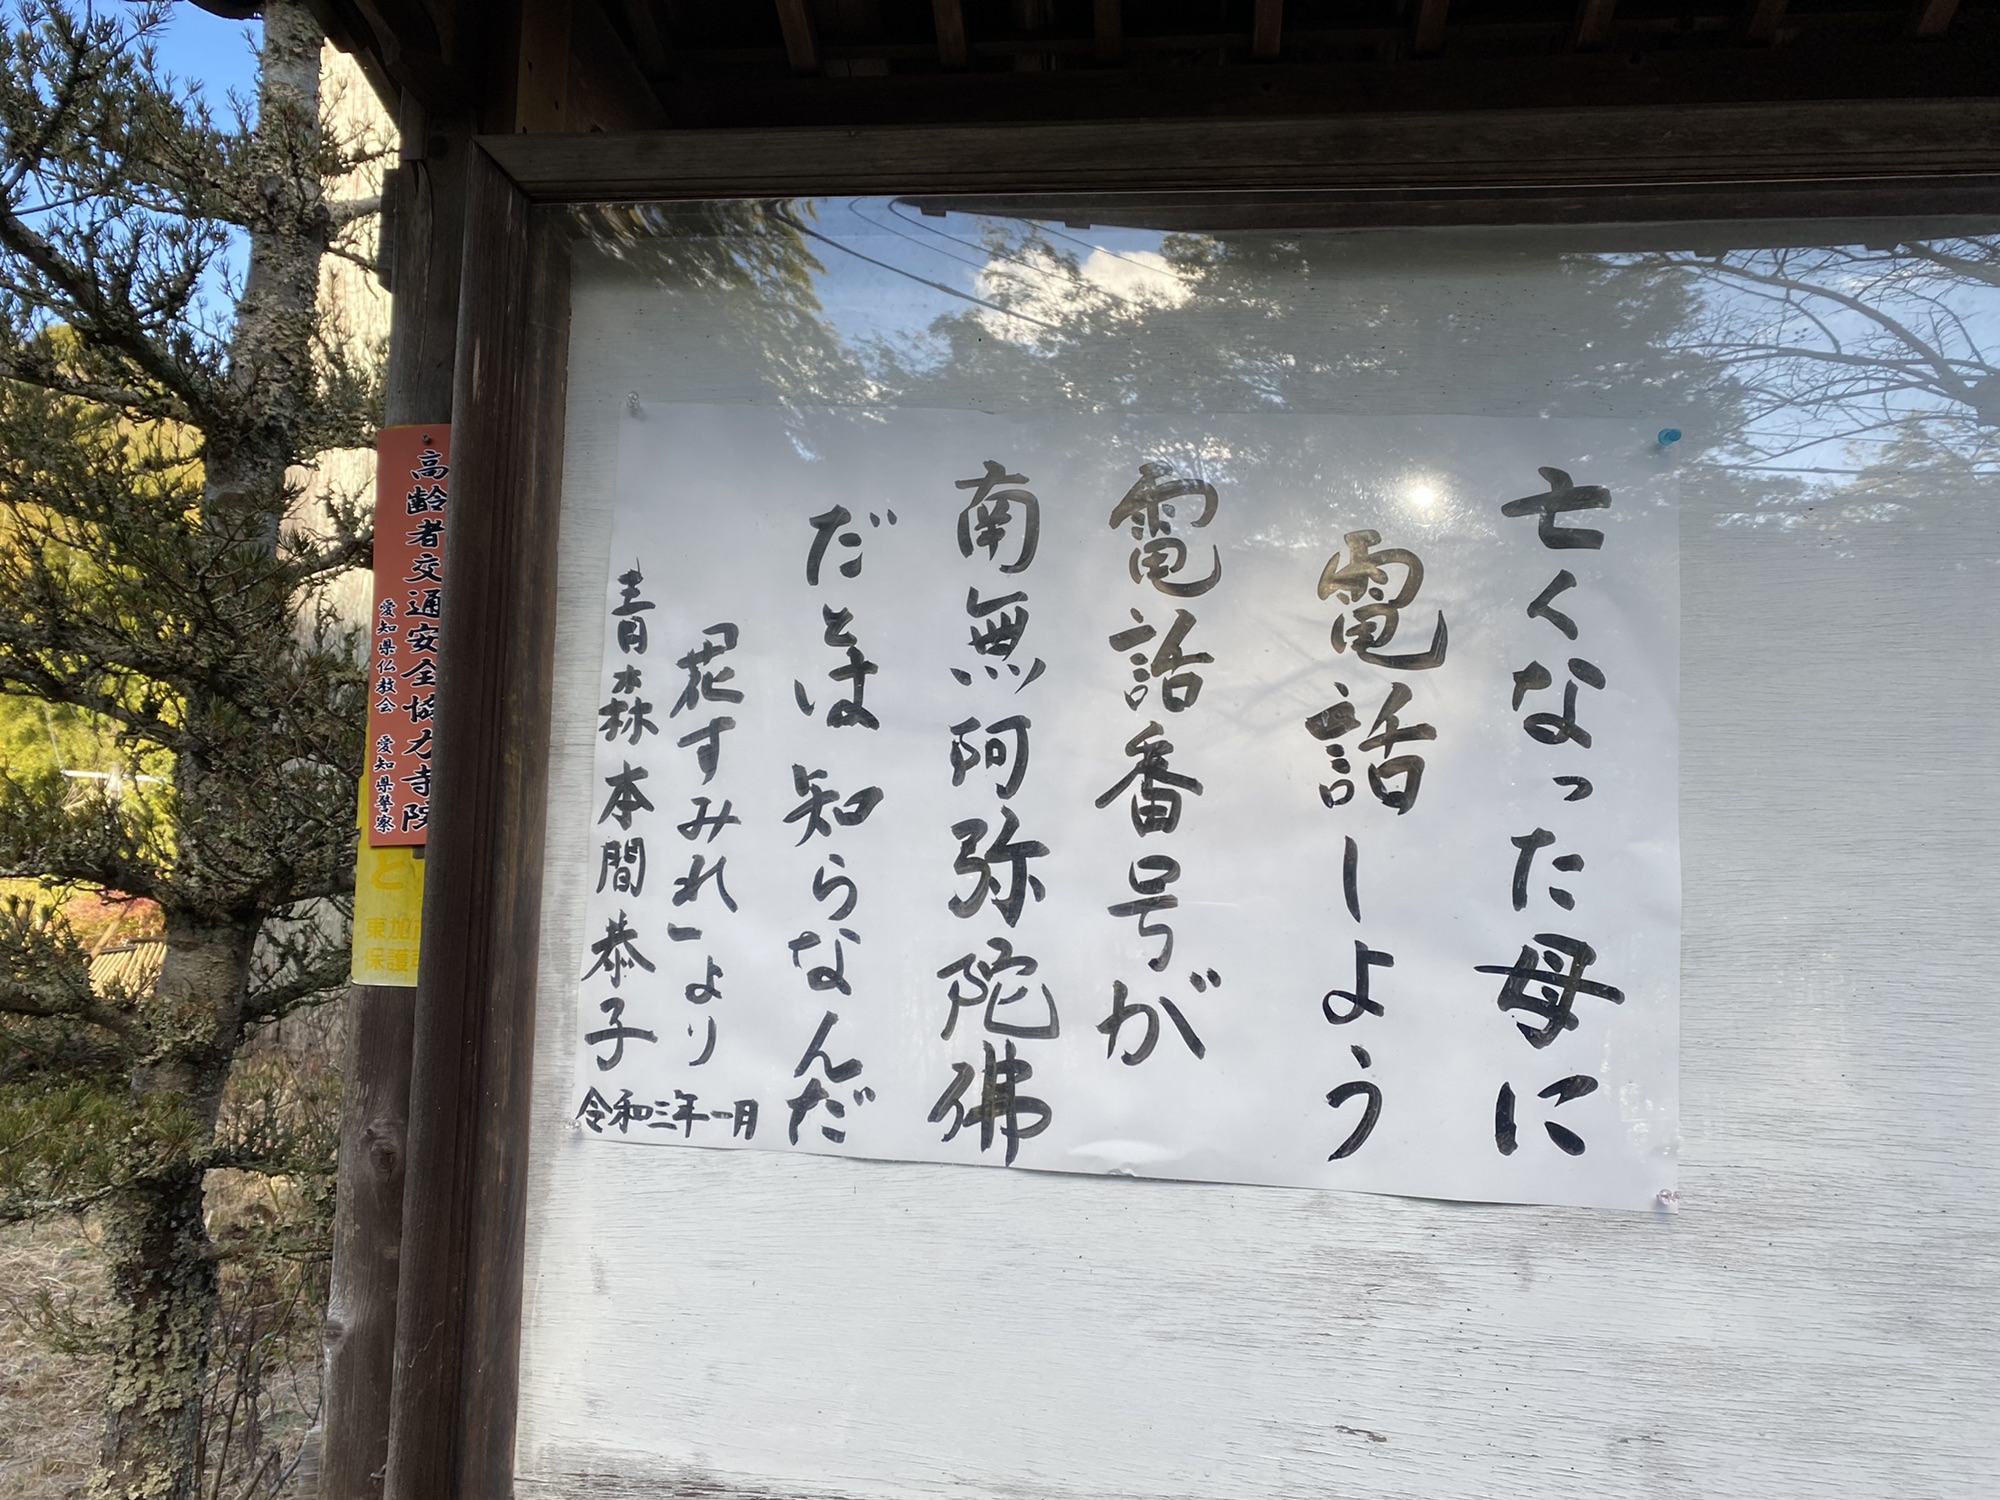 亡くなった母に
電話しよう
電話番号が
南無阿弥陀佛
だとは知らなんだ
「花すみれ」より
青森 本間恭子
令和三年一月
高齢者交通安全協力寺院
愛知県仏教会 愛知県警察
と
東加
保護